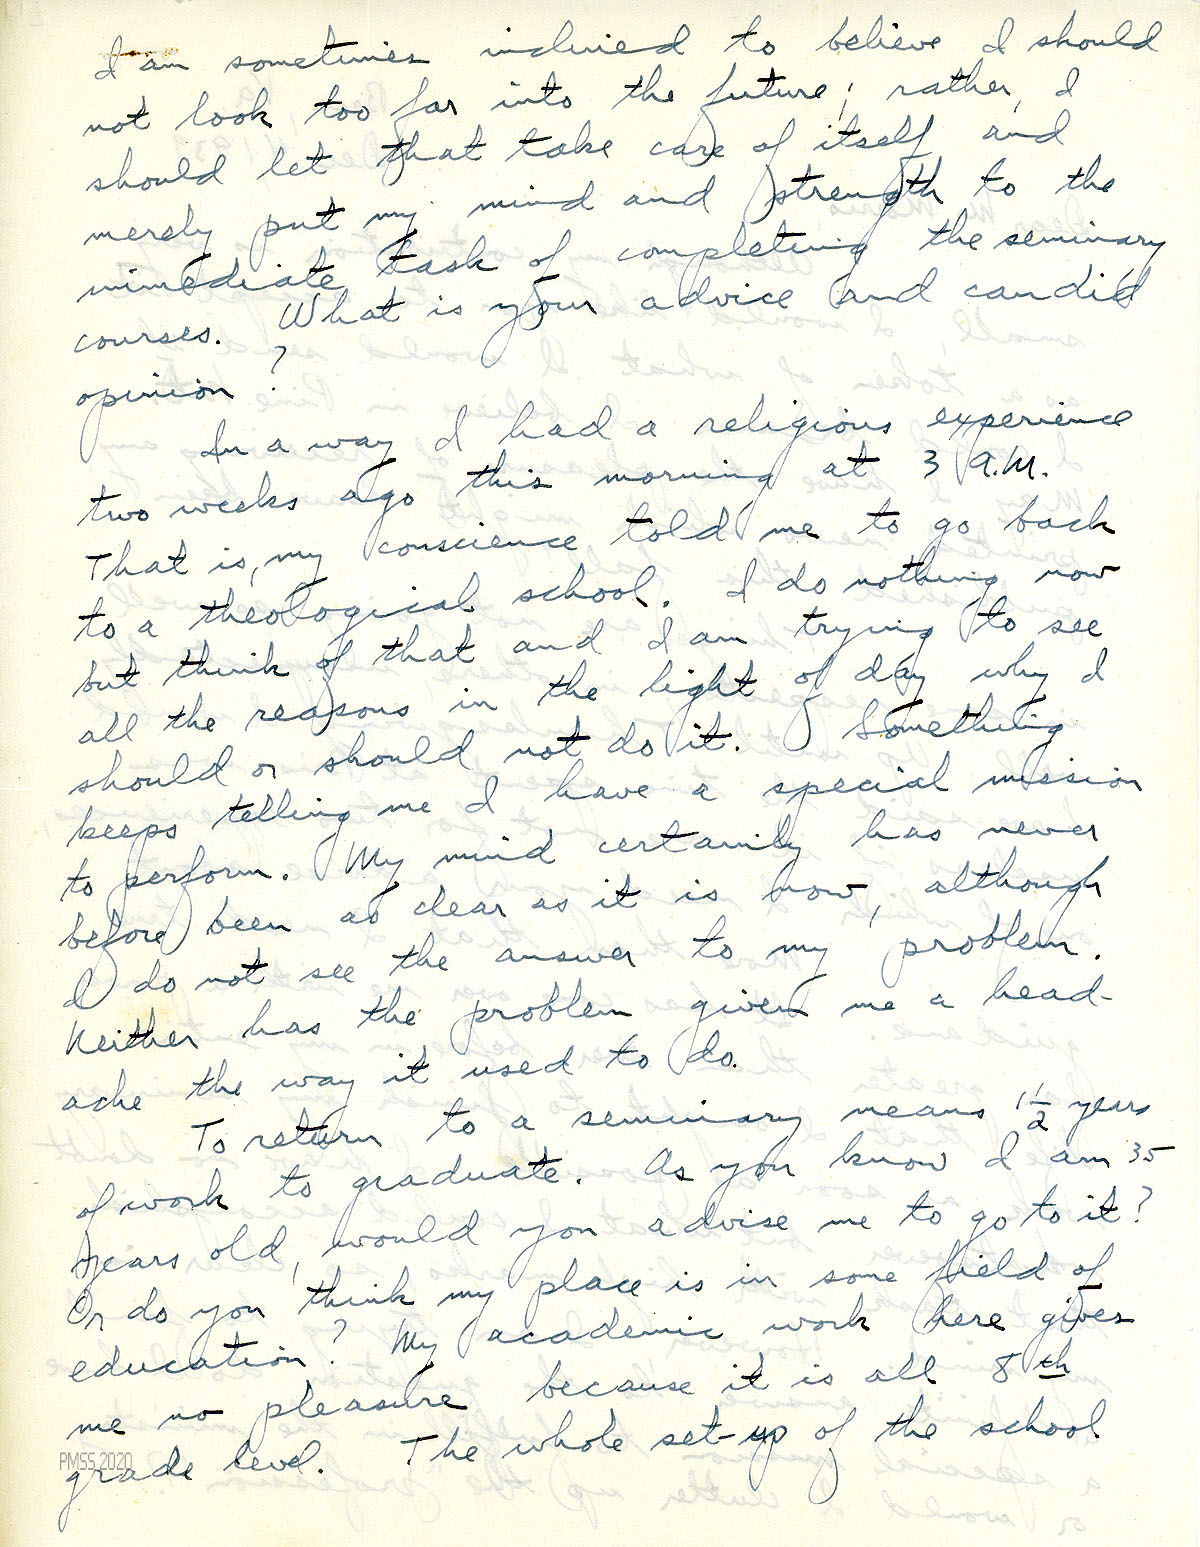 I am sometimes inclined to believe I should
not look too far into the future; rather, I
should let that take care of itself and
merely put my mind and strength to the
immediate task of completing the seminary
courses. What is your advice and candid
opinion?
In a way I had a religious experience
two weeks ago this morning at 3 A.M.
That is, my conscience told me to go back
to a theological school. I do nothing now
but think of that and I am trying to see
all the reasons in the light of day why I
should or should not do it. Something
keeps telling me I have a special mission
to perform. My mind certainly has never
before been as clear as it is now, although
I do not see the answer to my problem.
Neither has the problem given me a head-
ache the way it used to do.
To return to a seminary means 1 1/2 years
of work to graduate. As you know I am 35
years old, would you advise me to go to it?
Or do you think my place is in some field of
education? My academic work here gives
me no pleasure because it is all 8th
grade level. The whole set-up of the school
PMSS 2020